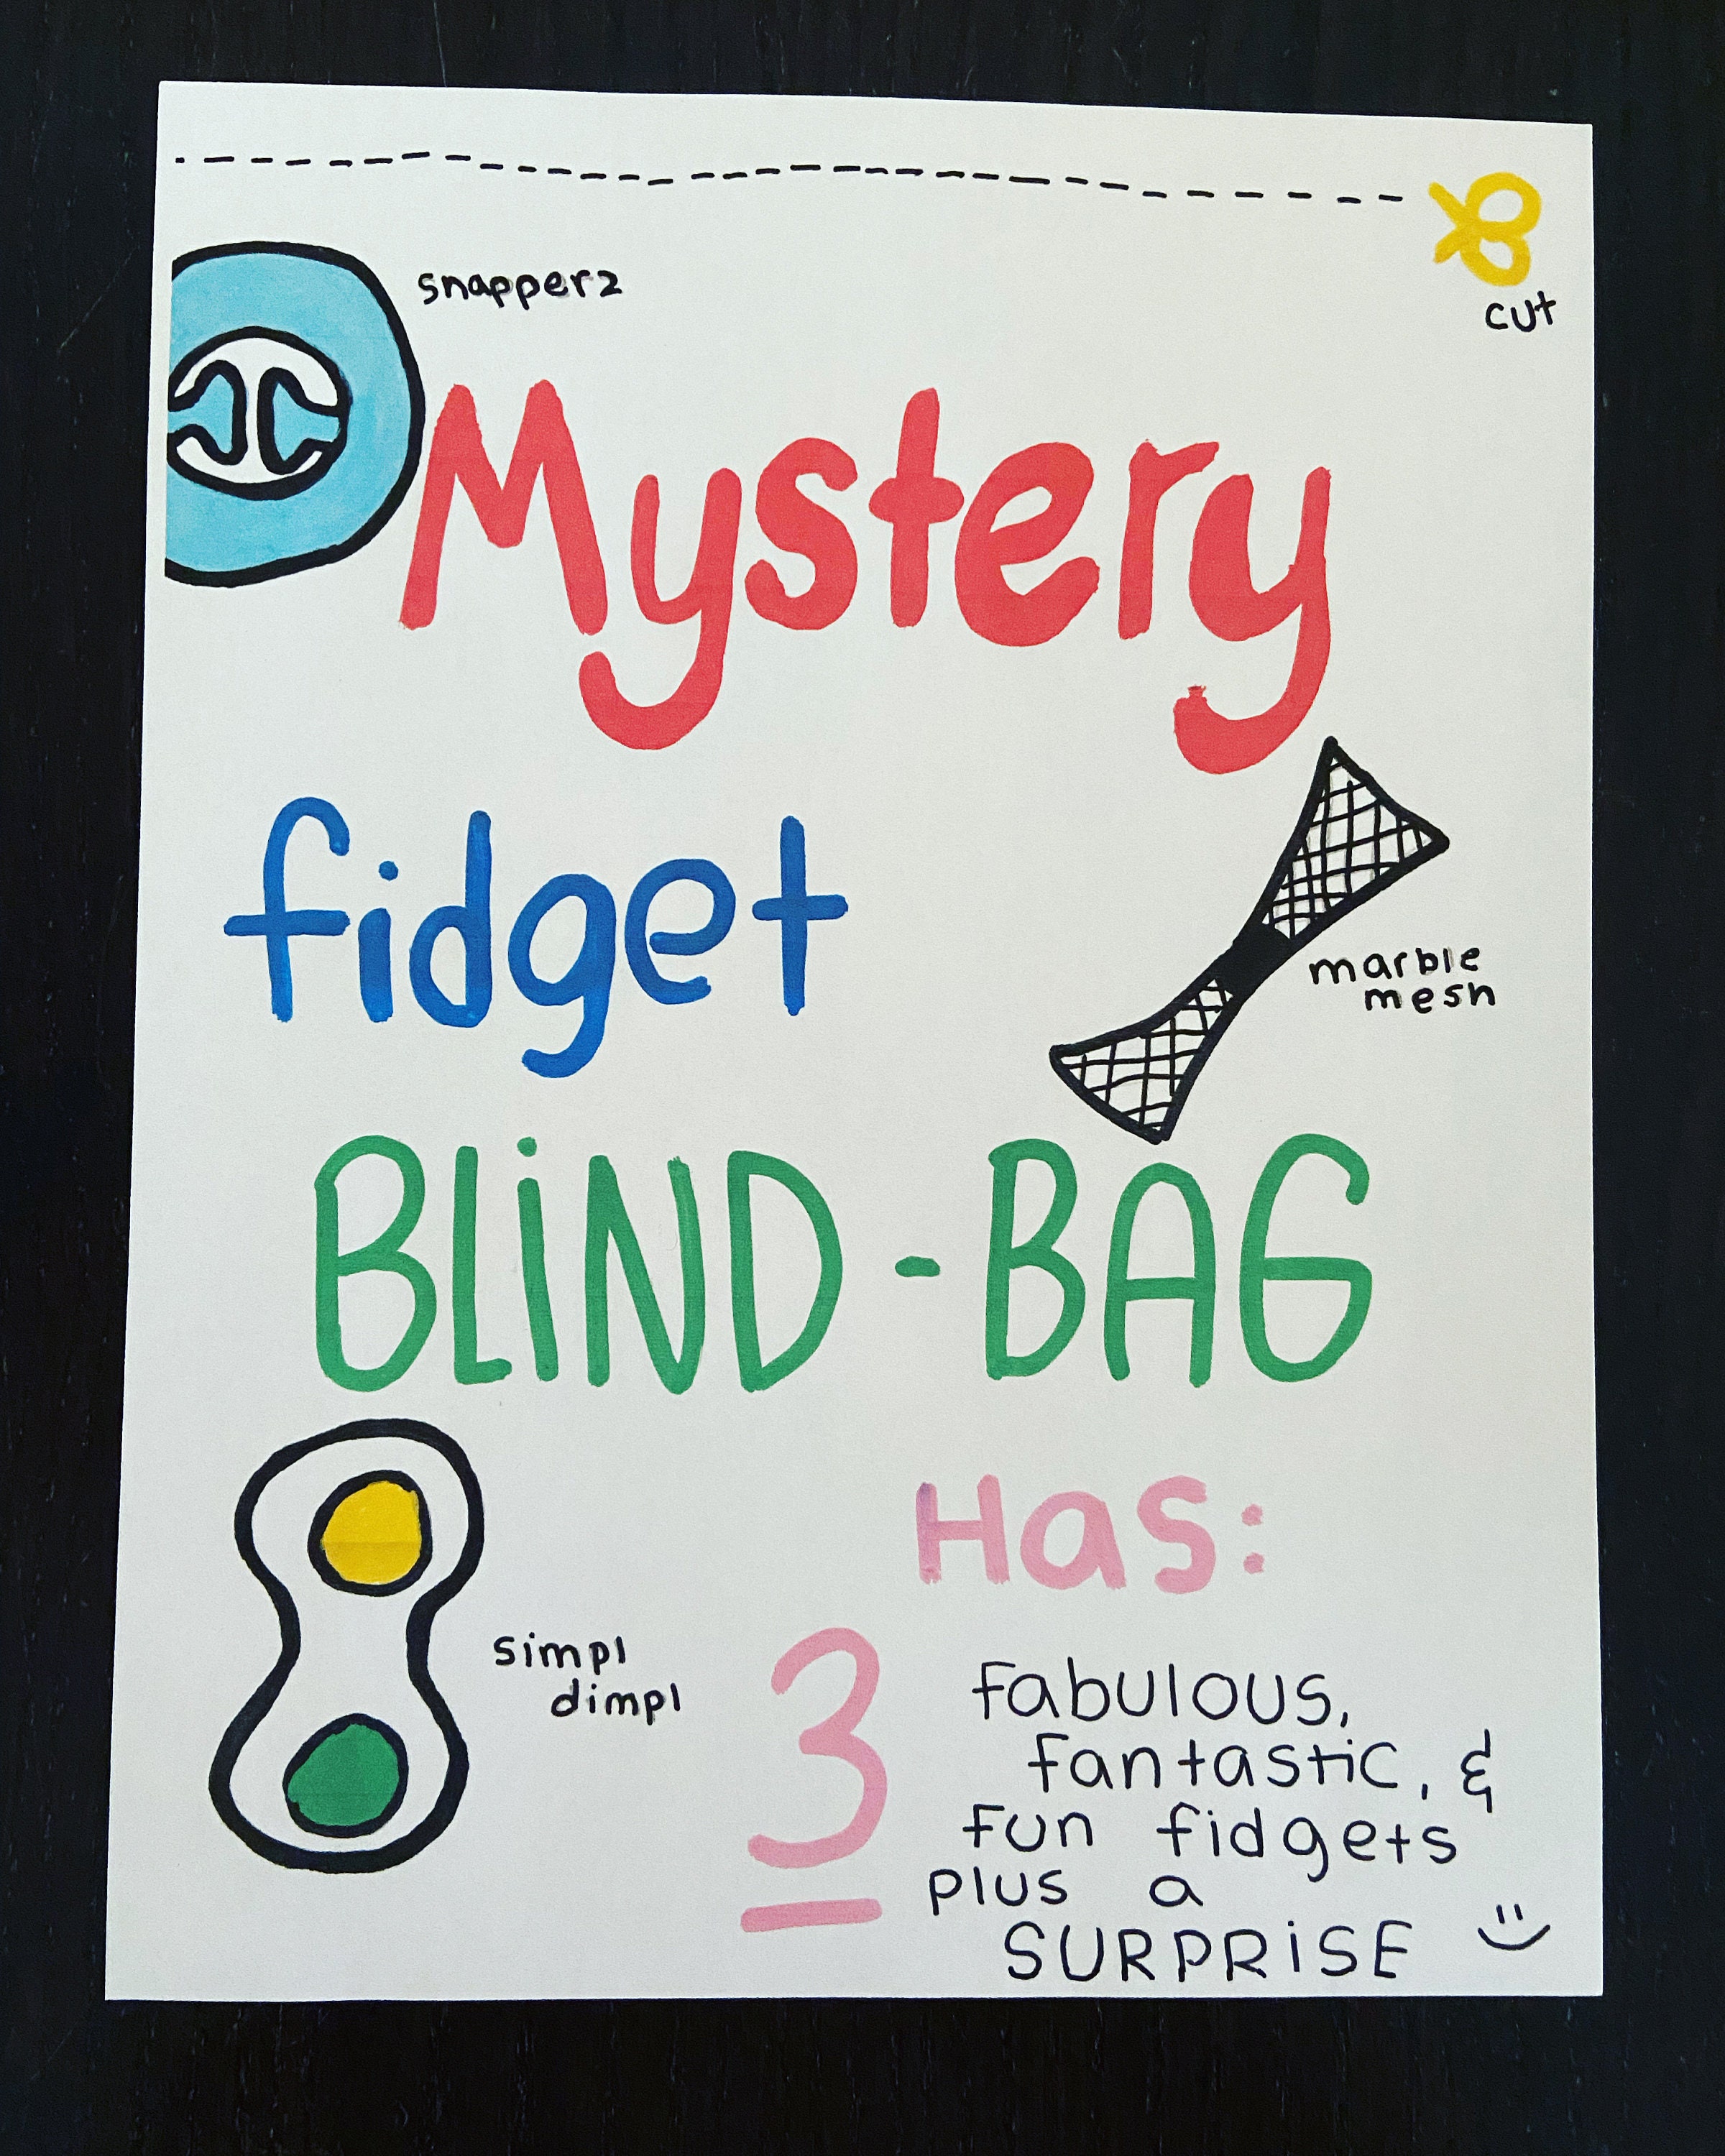 snapperz
cut
Mystery
fidget
marble
mesh
BLiND-BAG
Has:
simpl
dimpl
3
fabulous,
fantastic, &
fun fidgets
plus a
SURPRiSE